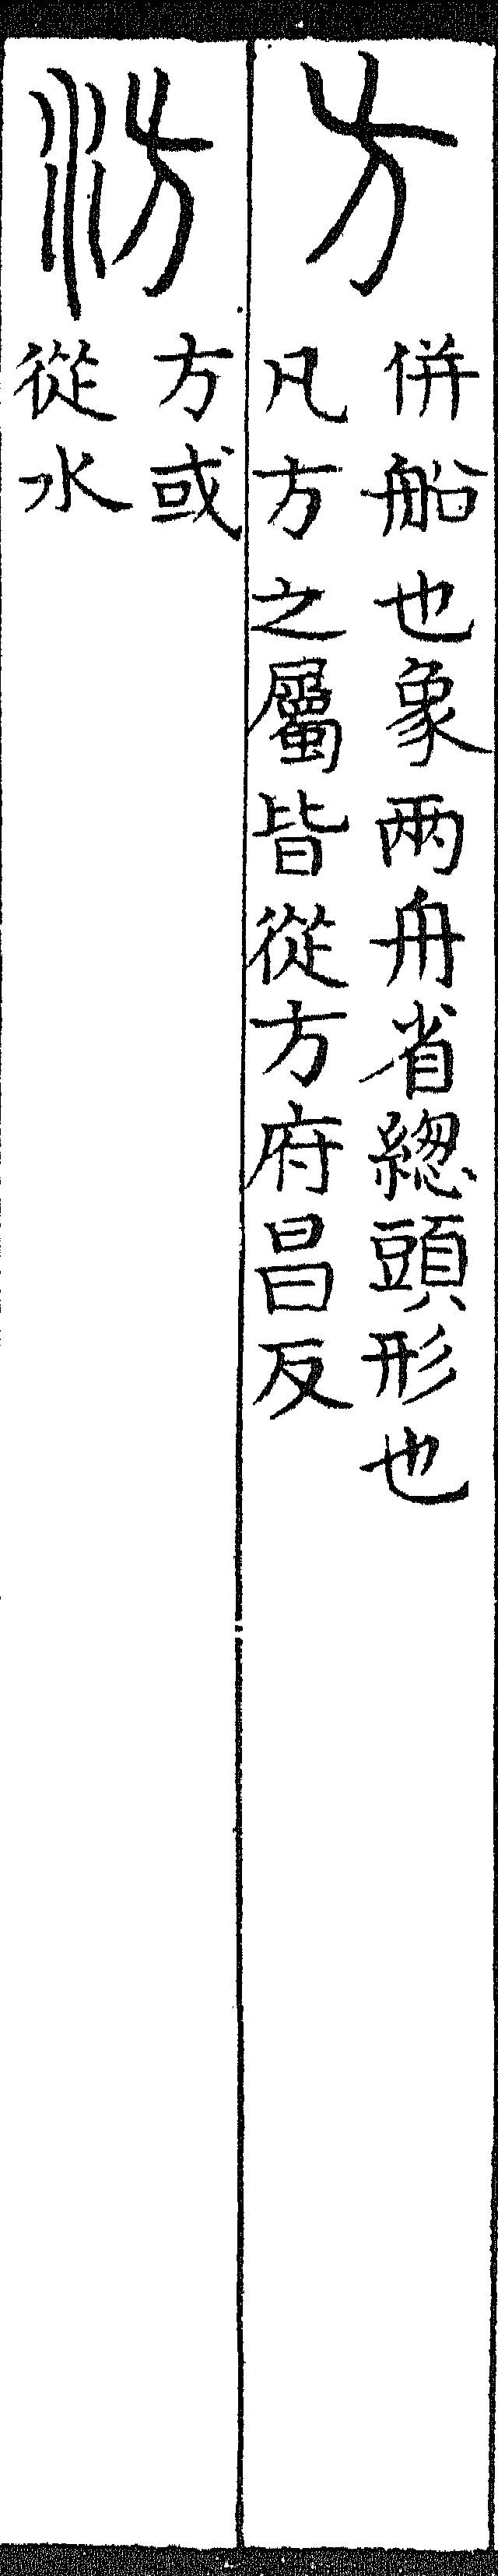 方
併船也象兩舟省緫頭形也
凡方之屬皆從方府昌反
汸
方或
從水